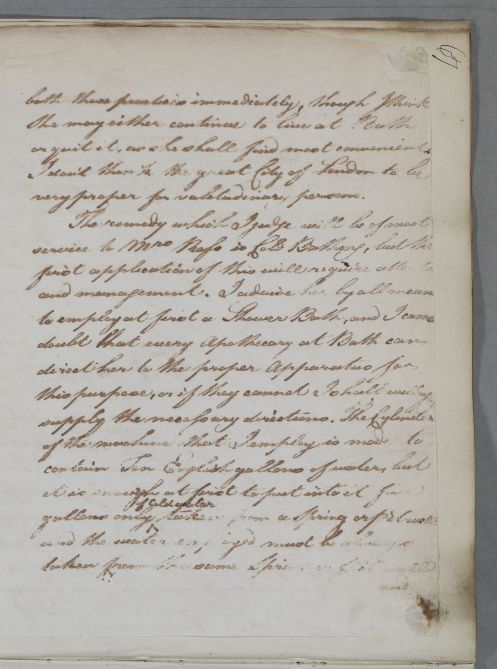 both these practices immediately, though I think
She may either continue to live at Bath
or quit it, as she shall find most convenient
I don't think the great City of London to be
very proper for valetudinary persons.
The remedy which I judge will be of most
service to Mrs Ross is Cold Bathing, but the
first application of this will require atte
and management. I advise her by all means
to employ at first a Shower Bath, and I cannot
doubt that every Apothecary at Bath can
direct her to the proper Apparatus for
this purpose, or if they cannot I shall
supply the necessary directions. The Cylinder
of the machine that I employ is made to
contain Ten English gallons of water, but
it is enough at first to put into it five
gallons only of Cold water taken from a Spring or
and the water must be always
taken from the same Spring or
and